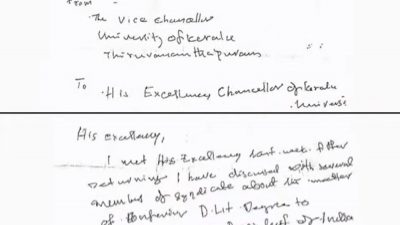 From
The Vice Chancellor
University of Kerala
Thiruvananthapuram.
To
His Excellency Chancellor of Kerala
Universi
His excellency,
I met His Excellency last week. After
returning I have discussed with several
member of syndicate about the matter
of Conferring D.Lit Degree to
of India